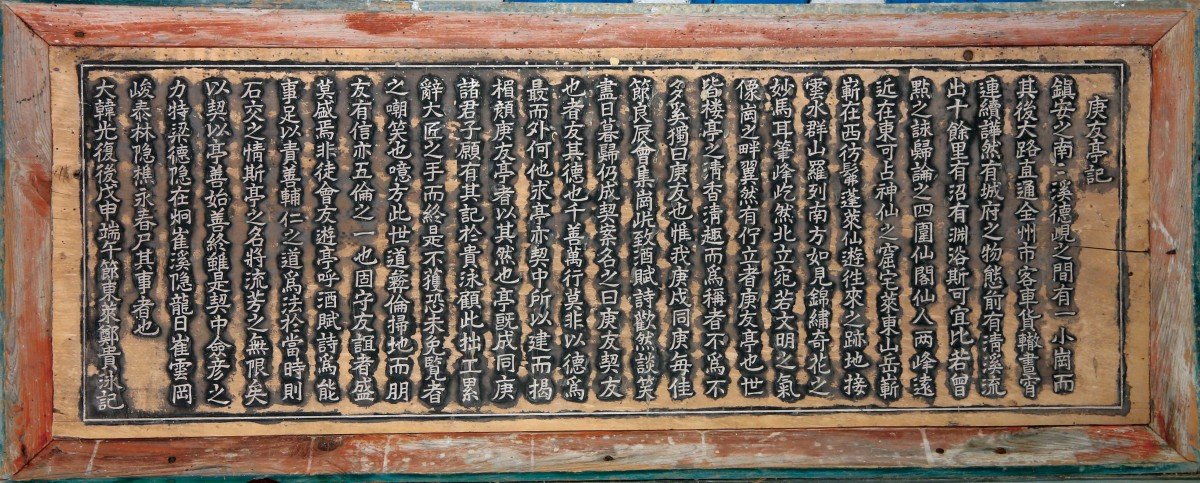 庚友亭記
鎮安之南二溪德峴之間有一小崗而
其後大路直通全州市客車貨轍晝宵
連續譁然有城府之物態前有淸溪流
出十餘里有沼有淵浴斯可宜比若曾
點之詠歸論之四圍仙閣仙人兩峰遠
近在東可占神仙之窟宅萊東山岳嶄
嶄在西彷髴蓬萊仙遊往來之跡地接
雲水群山羅列南方如見錦繡奇花之
妙馬耳筆峰屹然北立宛若文明之氣
像崗之畔翼然有佇立者庚友亭也世
皆楼亭之淸香淸趣而爲稱者不爲不
多奚獨曰庚友也惟我庚戌同庚每佳
節良辰會集岡此致酒賦詩歡然談笑
盡日暮歸仍成契案名之曰庚友契友
也者友其德也千善萬行莫非以德爲
最而外何他求亭亦契中所以建而揭
楣顔庚友亭者以其然也亭旣成同庚
諸君子願有其記於貴泳顧此拙工累
辭大匠之手而終是不獲恐未免覽者
之嘲笑也噫方此世道彜倫掃地而朋
友有信亦五倫之一也固字友誼者盛
莫盛焉非徒會友遊亭呼酒賦詩爲能
事足以責善輔仁之道爲法於當時則
石交之情斯亭之名將流芳之無限矣
以契以亭善始善終維是契中僉彦之
力特梁德隐在炯崔溪隐龍日崔雲岡
峻泰林隐樵永春尸其事者也
大韓光復後戊申端午節東萊鄭貴泳記